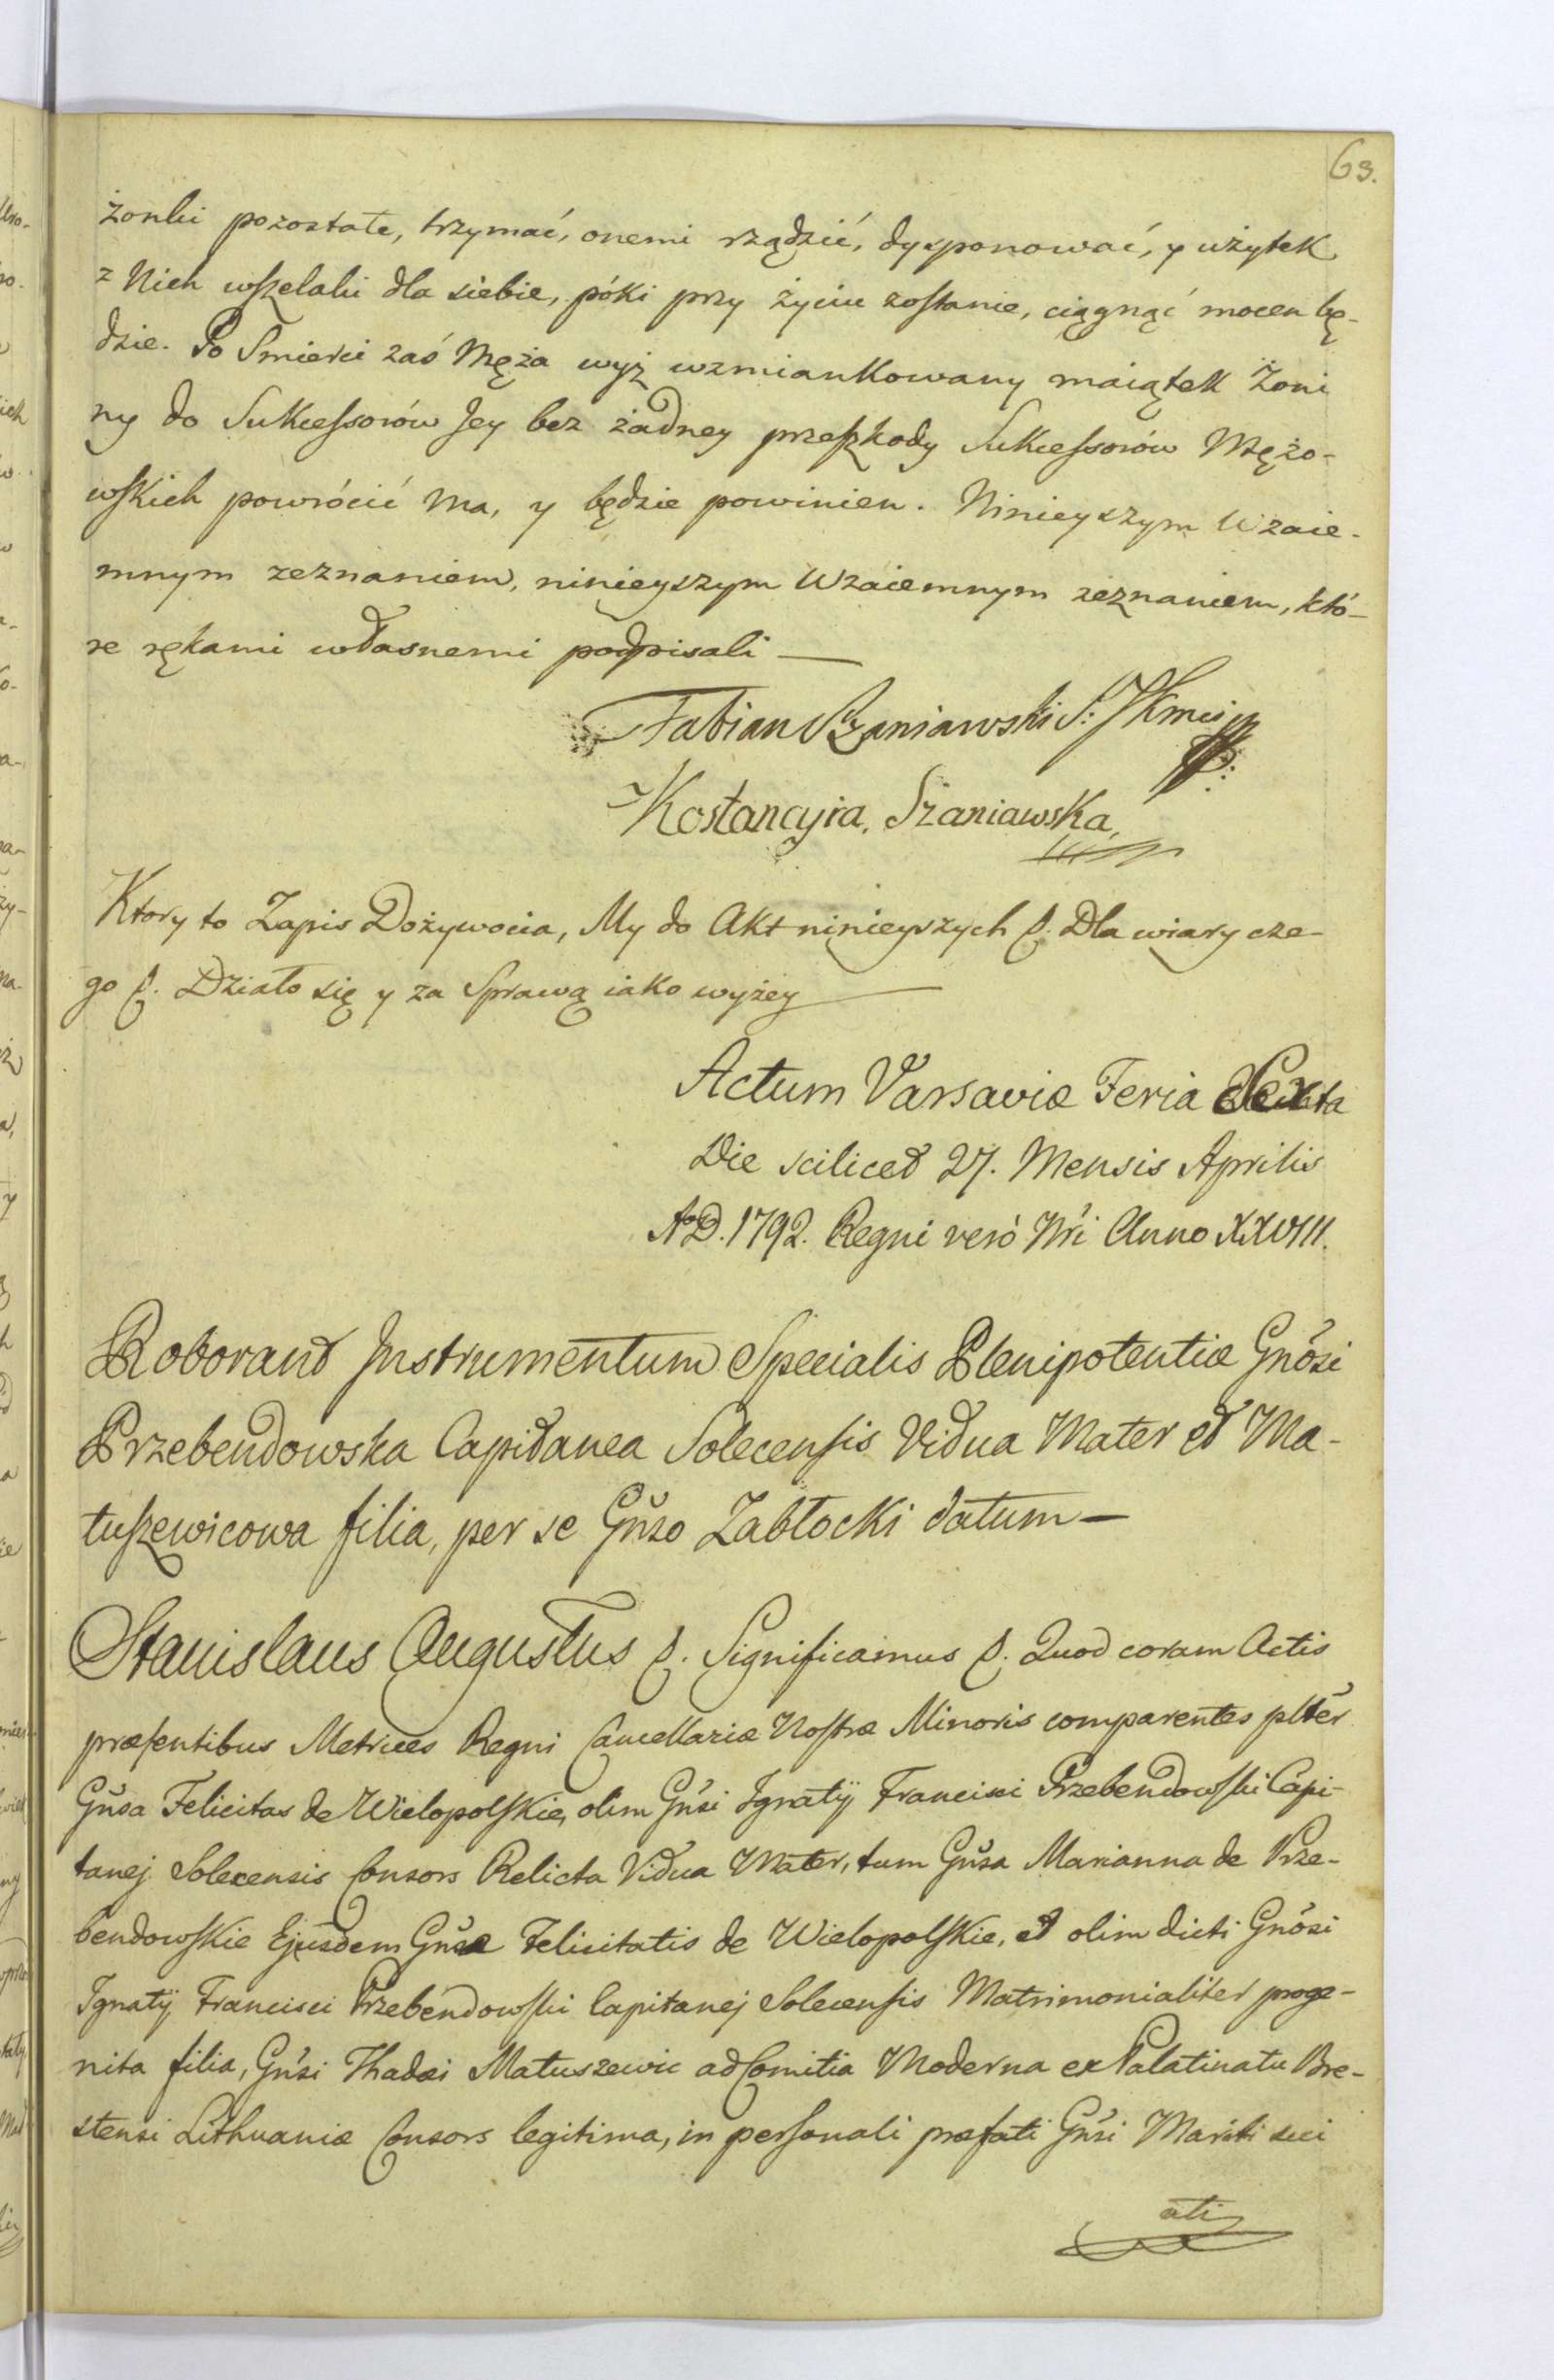 63.
żonki pozostałe, trzymać, onemi rządzić, dysponować, y użytek
z Nich wszelaki dla siebie, póki przy życiu zostanie, ciągnąć mocen bę-
dzie. Po Smierci zaś Męża wyż wzmiankowany maiątek Żoni
ny do Sukcessorów Jey bez żadney przeszkody Sukcessorów Mężo-
wskich powrócić ma, y będzie powinien. Ninieyszym Wzaie-
mnym zeznaniem, ninieyszym Wzaiemnym zeznaniem, któ-
re rękami własnemi podpisali —
Fabian Szaniawski S: JKmci
Kostancyia, Szaniawska,
Ktory to Zapis Dożywocia, My do Akt ninieyszych p. Dla wiary cze-
go p. Działo się y za Sprawą iako wyżey —
Actum Varsaviæ Feria Sexta
Die scilicet 27. Mensis Aprilis
AoD. 1792. Regni verò Nri Anno XXVIII.
Roborant Instrumentum Specialis Plenipotentiæ Gnosi
Przebendowska Capitanea Solecensis Vidua Mater et Ma-
tuszewicowa filia, per se Gnso Zabłocki datum —
Stanislaus Augustus p. Significamus p. Quod coram Actis
præsentibus Metrices Regni Cancellariæ Nostræ Minoris comparentes plter
Gnsa Felicitas de Wielopolskie, olim Gnsi Ignatij Francisci Przebendowski Capi-
tanej Solecensis Consors Relicta Vidua Mater, tum Gnsa Marianna de Prze-
bendowskie Ejusdem Gnsæ Felicitatis de Wielopolskie, et olim dicti Gnosi
Ignatij Francisci Przebendowski Capitanej Solecensis Matrimonialiter proge-
nita filia, Gnsi Thadæi Matuszewic ad Comitia Moderna ex Palatinatu Bre-
stensi Lithuaniæ Consors legitima, in personali præfati Gnsi Mariti sui